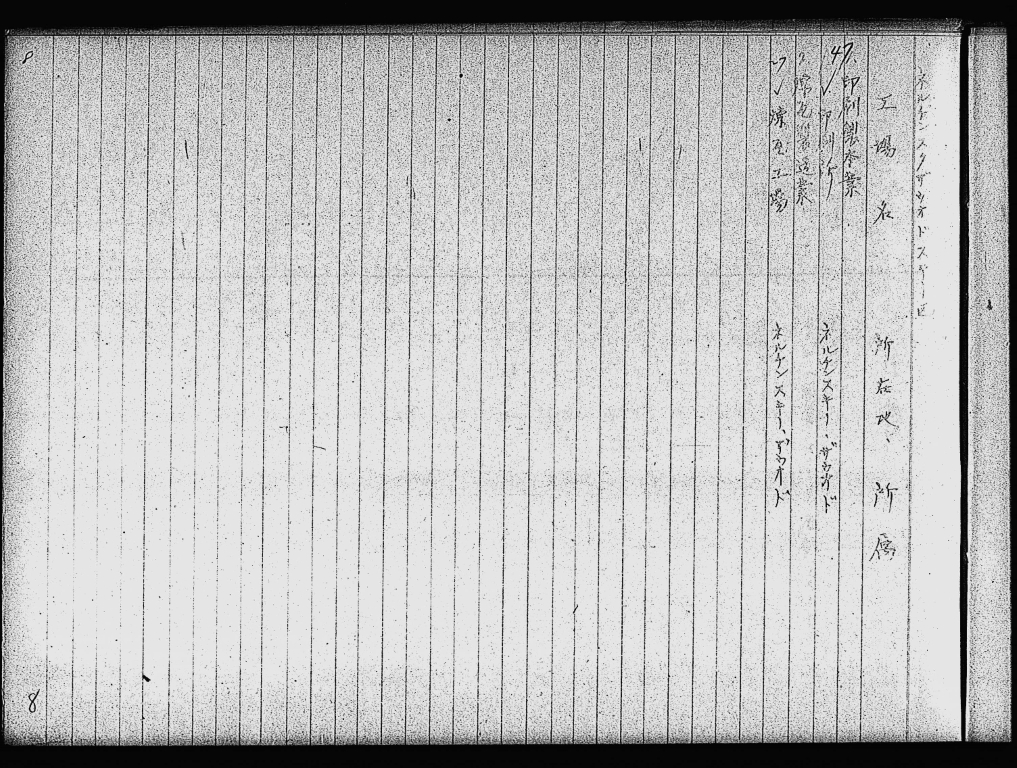 ネルケンスクザウオドスキー区
工場名 所在地、所属
47. 印刷製本業
印刷所 ネルケンスキー、ザウオード
2. 煉瓦製造業
煉瓦工場 ネルケンスキー、ザウオード
8
8